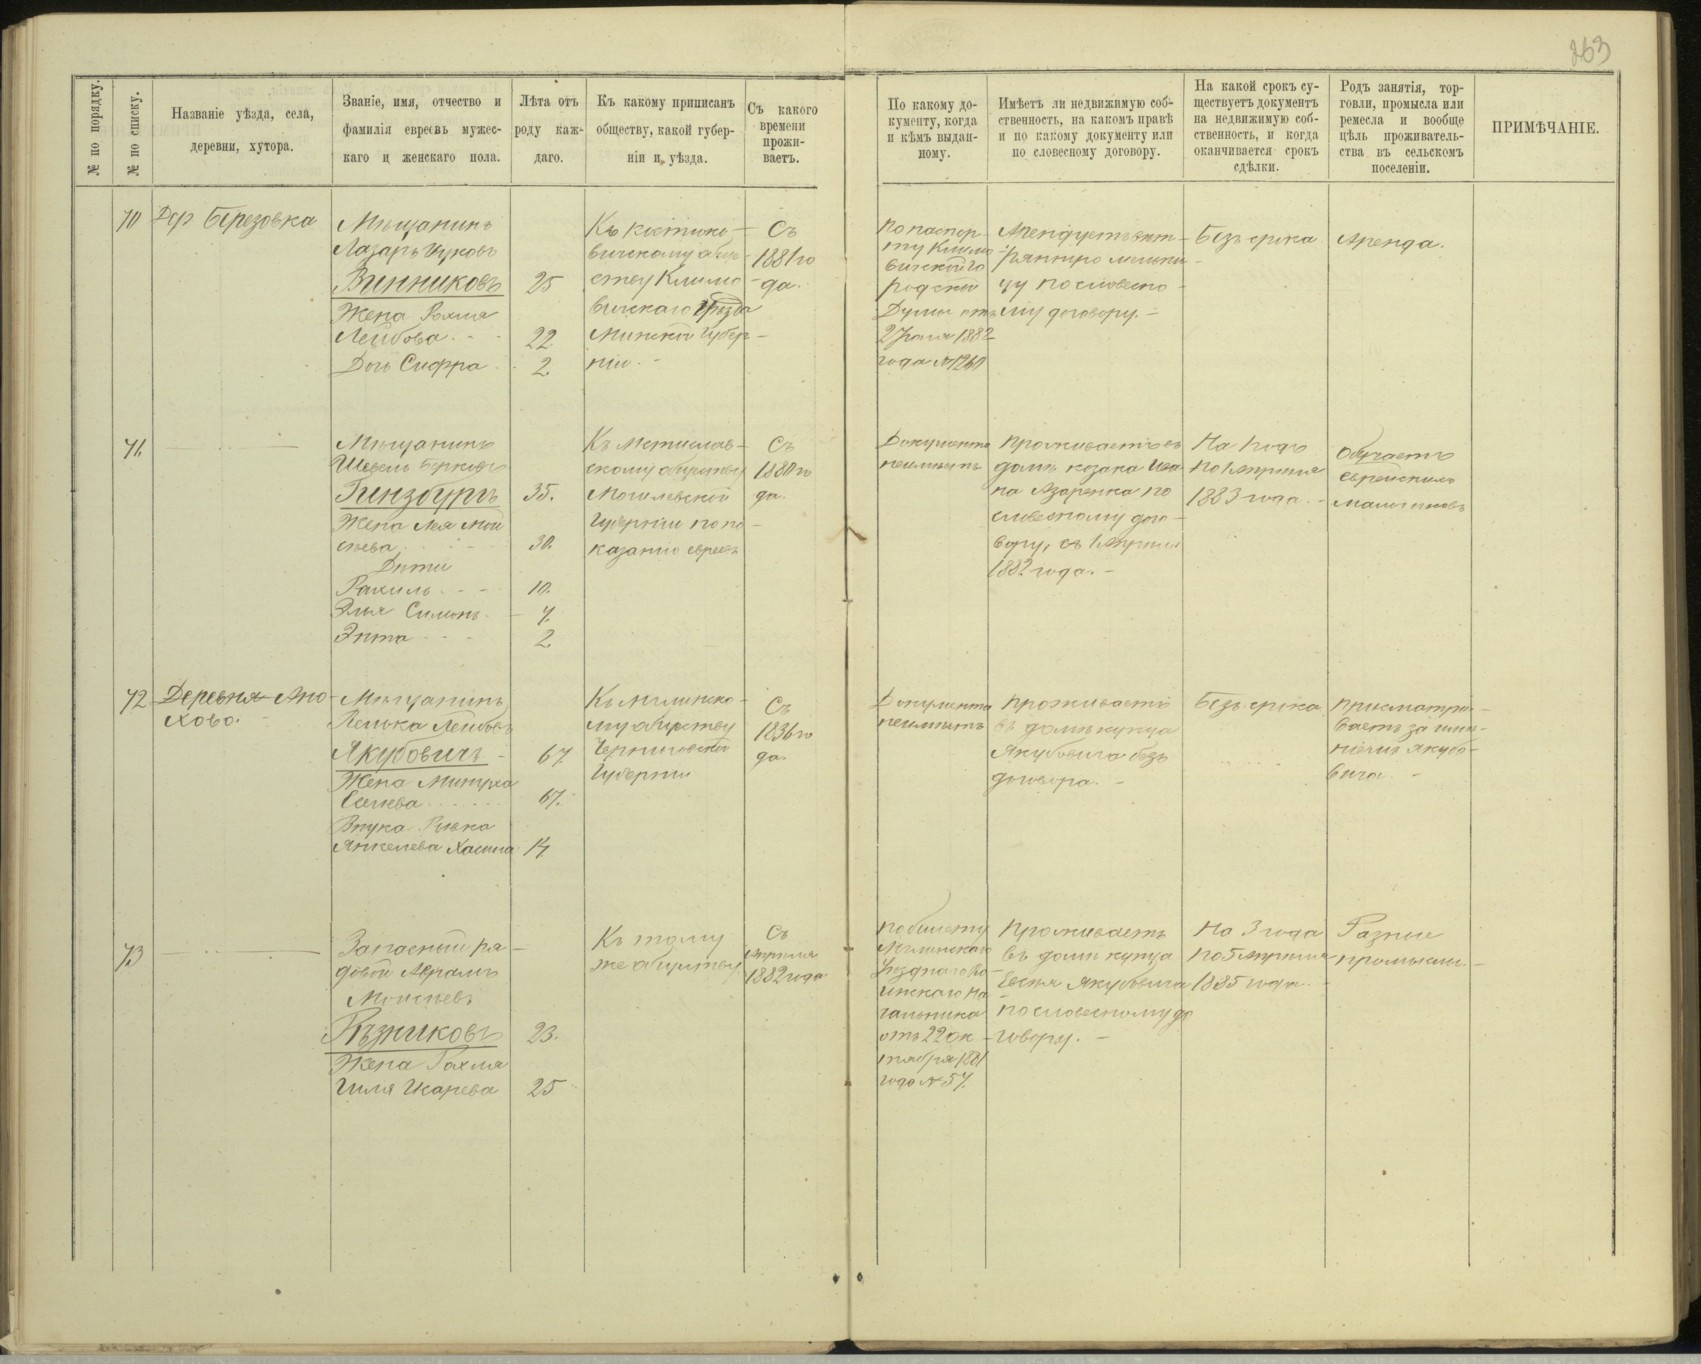 263
№ по порядку.
№ по списку.
Названіе уѣзда, села,
деревни, хутора.
Званіе, имя, отчество и
фамилія евреевъ мужес-
каго и женскаго пола.
Лѣта отъ
роду каж-
даго.
Къ какому приписанъ
обществу, какой губер-
ніи и уѣзда.
Съ какого
времени
прожи-
ваетъ.
По какому до-
кументу, когда
и кѣмъ выдан-
ному.
Имѣетъ ли недвижимую соб-
ственность, на какомъ правѣ
и по какому документу или
по словесному договору.
На какой срокъ су-
ществуетъ документъ
на недвижимую соб-
ственность, и когда
оканчивается срокъ
сдѣлки.
Родъ занятія, тор-
говли, промысла или
ремесла и вообще
цѣль проживатель-
ства въ сельскомъ
поселеніи.
ПРИМѢЧАНІЕ.
70
Дер Березовка
Мѣщанинъ
Лазарь
Винниковъ
25
Жена
Лейбова
22
Дочь Сифра
2
Къ
вичскому обще-
ству Климо-
вичскаго уѣзда
Минской Губер-
ніи.
Съ
1881 го
да.
По паспор-
ту Климо
вичской го
родской
Думы отъ
2 1882
года №1260
Арендуетъ
у по словесно-
му договору.
Безъ срока
Аренда.
71.
Мѣщанинъ
Шевель Берковъ
Гинзбургъ
35.
Жена Лея Мои
сѣева
30.
Дѣти
Рахиль
10.
Элья Симонъ
7.
Энта
2.
Къ Мстислав-
скому обществу
Могилевской
Губерніи по по-
казанію евреевъ
Съ
1880 го
да.
Документа
неимѣетъ
Проживаетъ въ
домѣ козака Ива
на Азаренка по
словесному дого-
вору, съ 1 Апрѣля
1882 года.
На 1 годъ
по 1 Апрѣля
1883 года.
Обучаетъ
Еврейскихъ
мальчиковъ
72
Деревня Ано-
хово.
Мѣщанинъ
Лейбовъ
Якубовичъ
67
Жена
67.
Внука Рывка
Янкелева Хасина
14
Къ Мглинско-
му обществу
Черниговской
Губерніи
Съ
1836 го
да.
Документа
неимѣетъ
Проживаетъ
въ домѣ купца
Якубовича безъ
договора.
Безъ срока
Присматри-
ваетъ за имѣ-
ніемъ Якубо-
вича
73
Запасный ря-
довой Абрамъ
Моисѣевъ
Рѣзниковъ
23.
Жена Рохля
25
Къ тому
же обществу
Съ
Апрѣля
1882 года
По билету
Мглинскаго
Уѣзднаго Во-
инскаго На-
чальника
отъ 22 Ок-
тября 1881
года № 57.
Проживаетъ
въ домѣ купца
Евсѣя Якубовича
по словесному до
говору.
На 3 года
по 5 Апрѣля
1885 года.
Разные
промыслы.